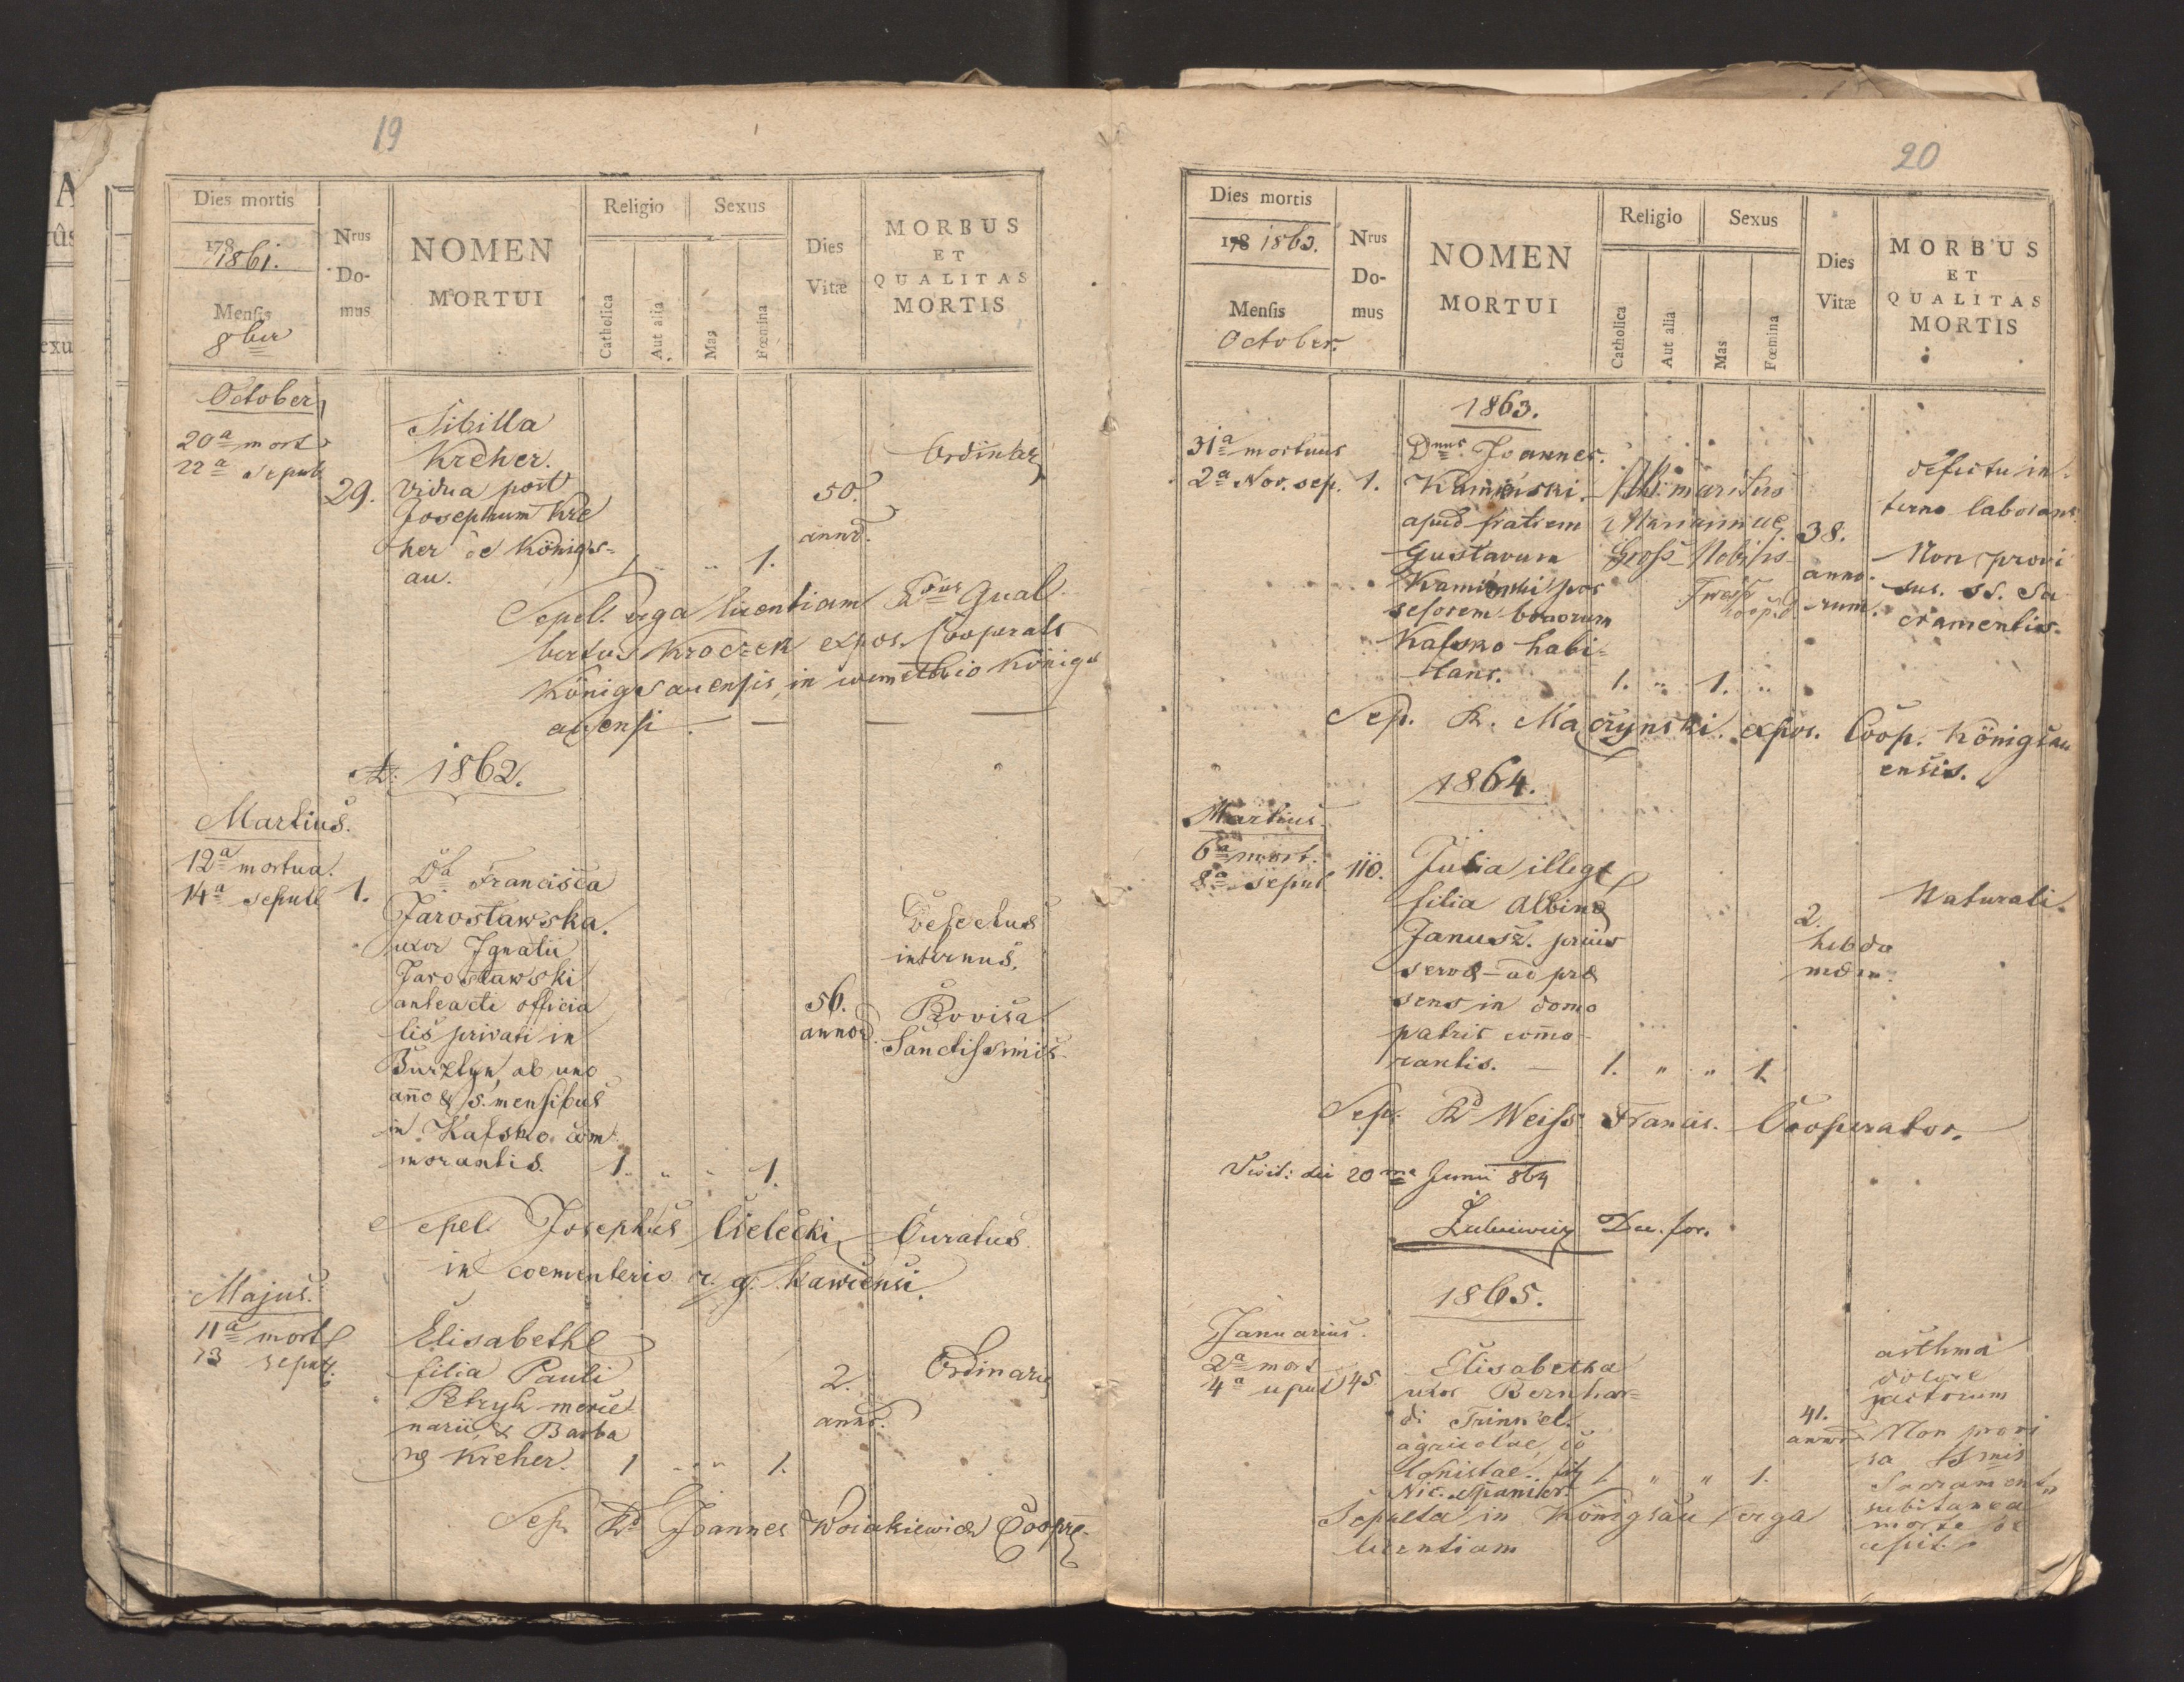 19
Dies mortis
178
1861.
Mensis
8ber
Nrus
Do-
mus
NOMEN
MORTUI
Religio
Sexus
Catholica
Aut alia
Mas
Fœmina
Dies
Vitæ
MORBUS
ET
QUALITAS
MORTIS
October
20a mort
22a sepult
29.
Sibilla
Kreher.
vidua post
Josephum Kre
her de Königs=
au.
1. " " 1.
50.
annor.
Ordinar
Sepel. erga licentiam Gual
bertus Kroczek expos. Cooperat
Königsauensis, in coemeterio Königs
auensi
A: 1862.
Martius.
12a mortua.
14a sepult
1.
Da Francisca
Jarosławska.
uxor Ignatii
Jarosławski
anteacti officia
lis privati in
Bursztyn, ab uno
año & 5. mensibus
in Kafsko com
morantis.
1. " " 1.
56.
annor.
Defectus
internus.
Provisa
Sanctissimis
Sepel. Josephus Cielecki Curatus
in coementerio r. g. Kawcensi.
Majus.
11a mort
13 sepult.
Elisabetha
filia Pauli
Petryk merce
narii, & Barba
ræ Kreher.
1 " " 1.
2.
annor.
Ordinaria
Sep. Rd Joannes Woiakiewicz Coopr
20
Dies mortis
178 1863.
Mensis
October.
Nrus
Do-
mus
NOMEN
MORTUI
Religio
Sexus
Catholica
Aut alia
Mas
Fœmina
Dies
Vitæ
MORBUS
ET
QUALITAS
MORTIS
1863.
31a mortuus
2a Nov. sep.
1.
Dnus Joannes.
Kamiński.
apud fratrem
Gustavum
Kamiński pos
sesorem bonorum
Kafsko habi=
tans.
maritus
Mariannae
Gross Nobilis
1. " 1. "
38.
anno-
rum.
defectu in
terno laborans
Non provi
sus. SS. Sa
cramentis.
Sep. R. Maczynski. expos. Coop. Königsau
ensis.
1864.
Martius.
6a mort.
8a sepul
110.
Julia illegt
filia Albinæ
Janusz. prius
servæ ad præ
sens in domo
patris com̄o
rantis.
1. " " 1.
2.
hebdo
mdm.
Naturali.
Sep. Rd Weiss Francis. Cooperator.
Visit: die 20ma Junii 864
Dec. for.
1865.
Januarius.
2a mort
4a sepul
145.
Elisabetha
uxor Bernhar=
di Trinkel.
agricolae, co
lonistae. filj
Nic. Spanier.
1. " " 1.
41.
annor
asthma
dolore
pectorum
Non provi
sa Ssmis
Sacrament.
subitanea
morte de
cessit.
Sepulta in Königsau erga
licentiam